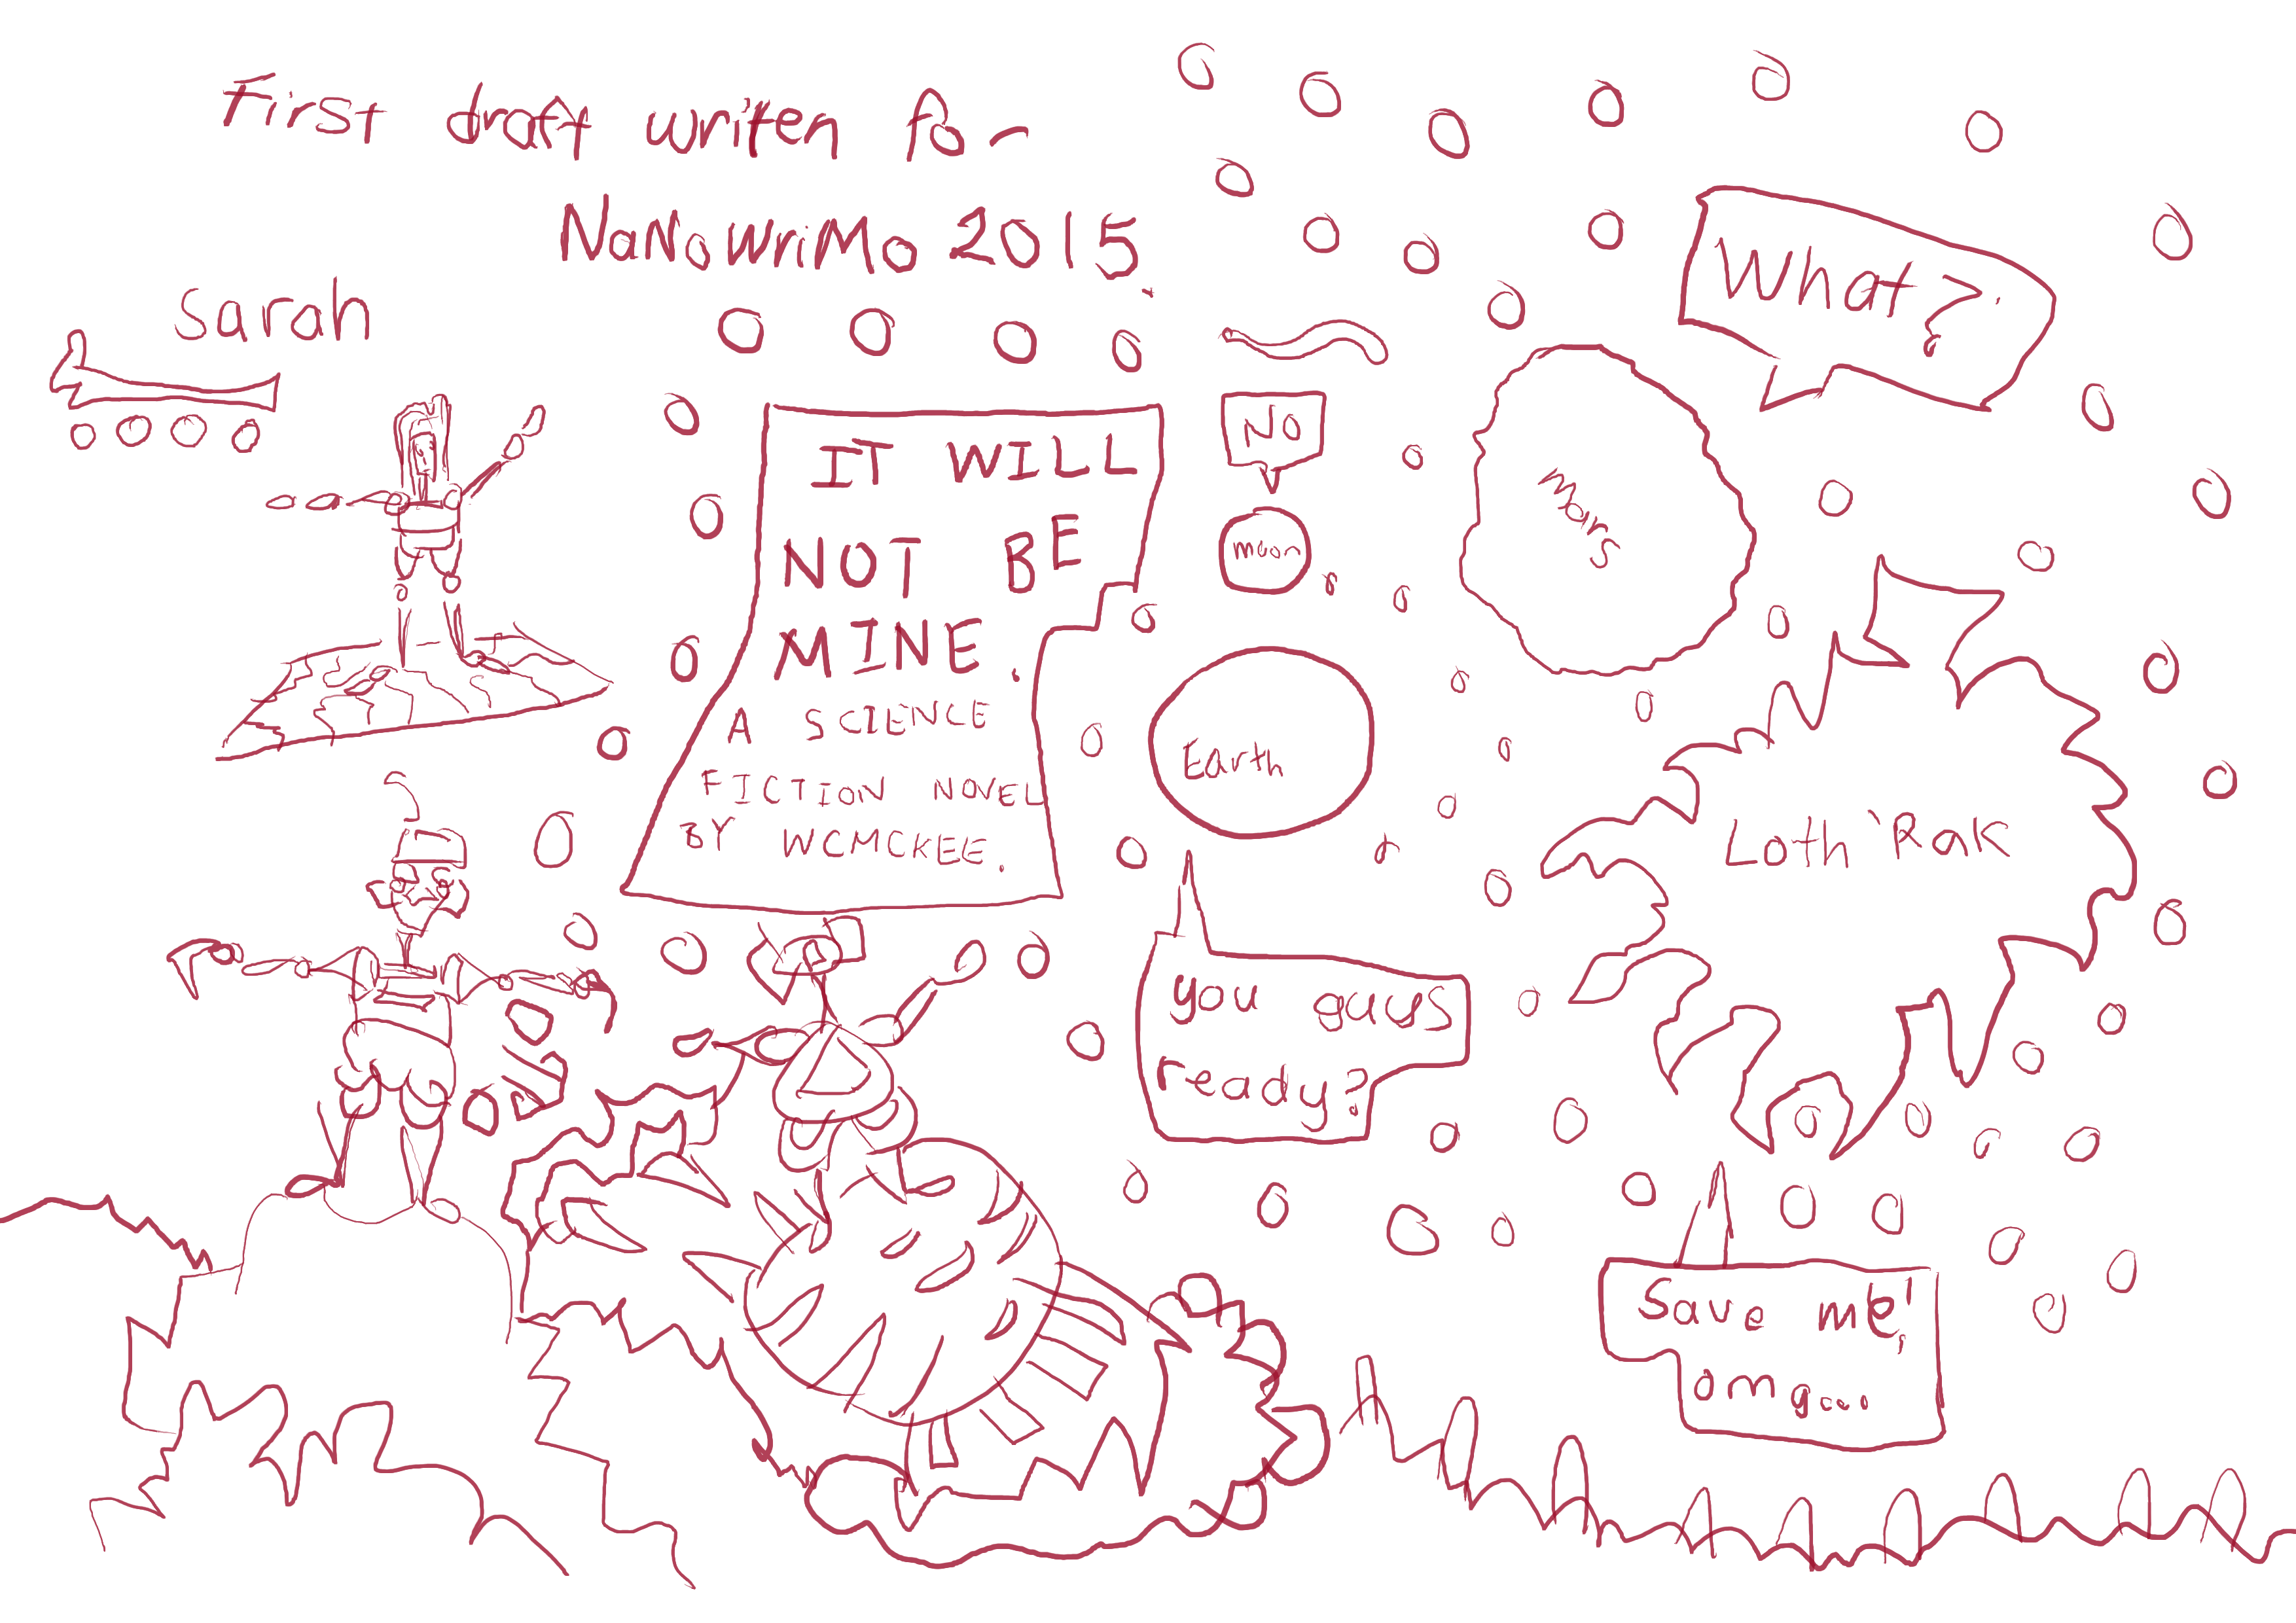 First draft writen for
NaNoWriMo 2015.
Sarah
IT WILL
NOT BE
MINE.
A SCIENCE
FICTION NOVEL
BY WCMCKEE.
No
moon
What?
Mars
Earth
Loth'Rak
you guys
ready?
David
Save me!
omg...